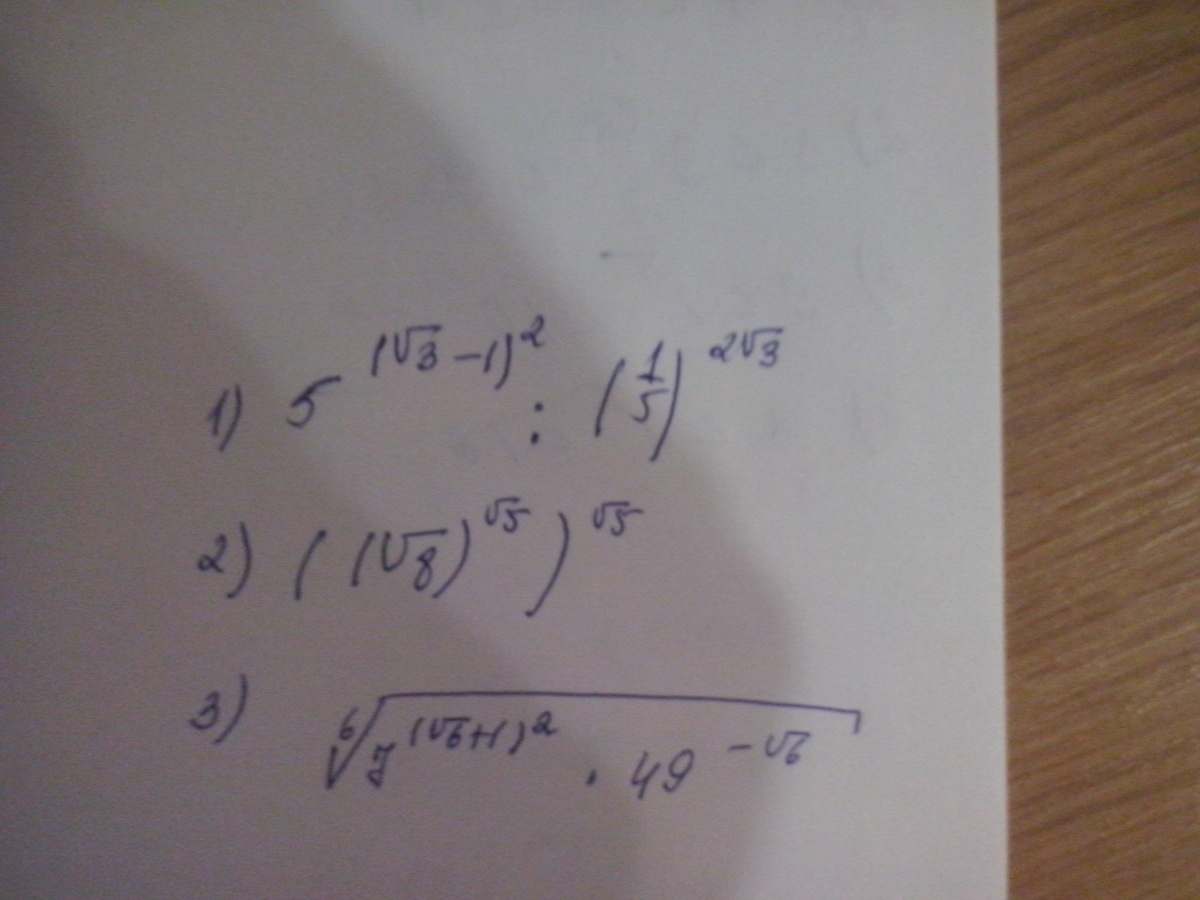 1) 5^{(√3-1)^2} : (1/5)^{2√3}
2) ((√8)^{√5})^{√5}
3) \sqrt[6]{7^{(√6+1)^2} · 49^{-√6}}